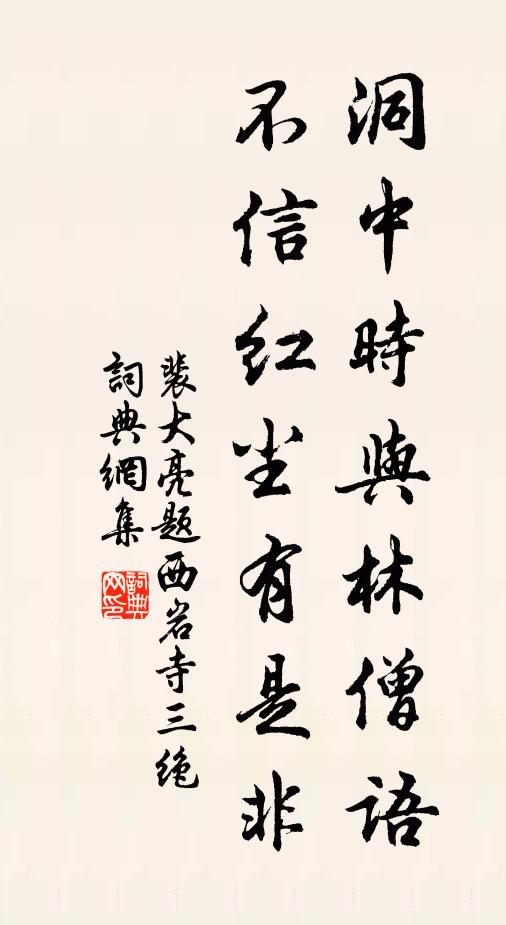 洞中時與林僧語
不信红尘有是非
裴大亮题西岩寺三绝
詞典網集
詞典网印